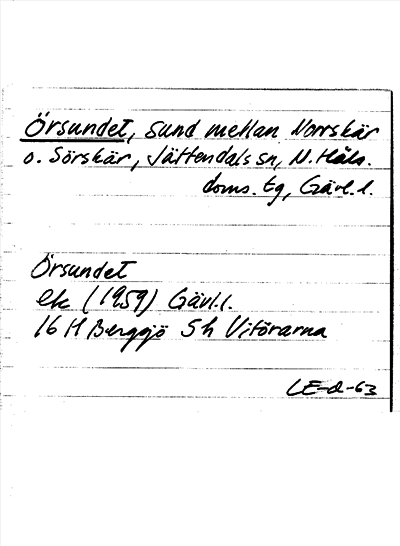 Örsundet, sund mellan Norrskär
o. Sörskär, Jättendals sn, N. Häls.
doms. tg, Gävl. l.
Örsundet
ek (1959) Gävl. l.
16 H Bergsjö 5 h Vitörarna